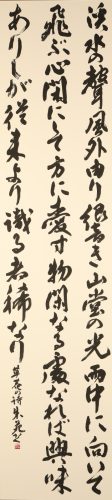 渓水の聲風外由り経き山堂の光雨中に向いて
飛ぶ心閑にして方に愛す物閑なる處なれば興味
ありしが従来より識る者稀なり